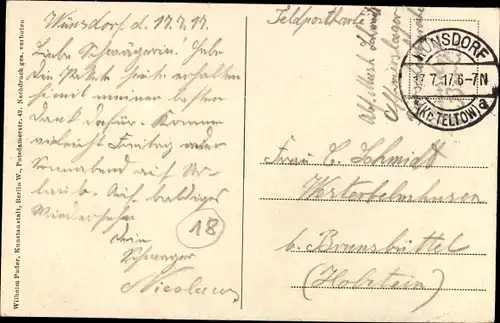 Wünsdorf d. 17.7.17.
Liebe Schwägerin. Habe
die Pakete heute erhalten
meinen besten
Dank dafür. Komme
vielleicht Freitag oder
Sonnabend auf Ur-
laub. Auf baldiges
Wiedersehn
Dein
Schwager
Nicolaus
18
Wilhelm Puder, Kunstanstalt, Berlin W., Potsdamerstr. 42. Nachdruck ges. verboten
Feldpostkarte
Abs. Musk. Schmidt
WÜNSDORF
17.7.17.6-7N
(KR. TELTOW) a
Frau C. Schmidt
Westerbelmhusen
b. Brunsbüttel
(Holstein)